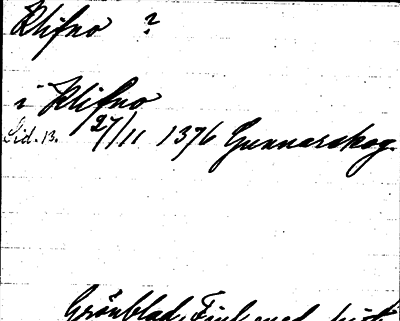 Klifno ?
i Klifno
Sid. 13. 27/11 1376 Gunnarskog
Grönblad,